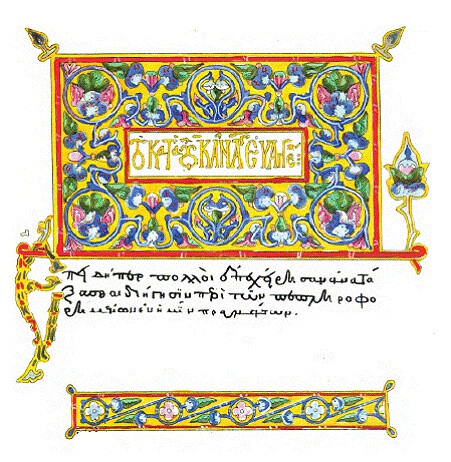 ΕΥΑΓΓΕ
Ἐπειδήπερ πολλοὶ ἐπεχείρησαν ἀνατά
ξασθαι διήγησιν περὶ τῶν πεπληροφο
ρημένων ἐν ἡμῖν πραγμάτων.